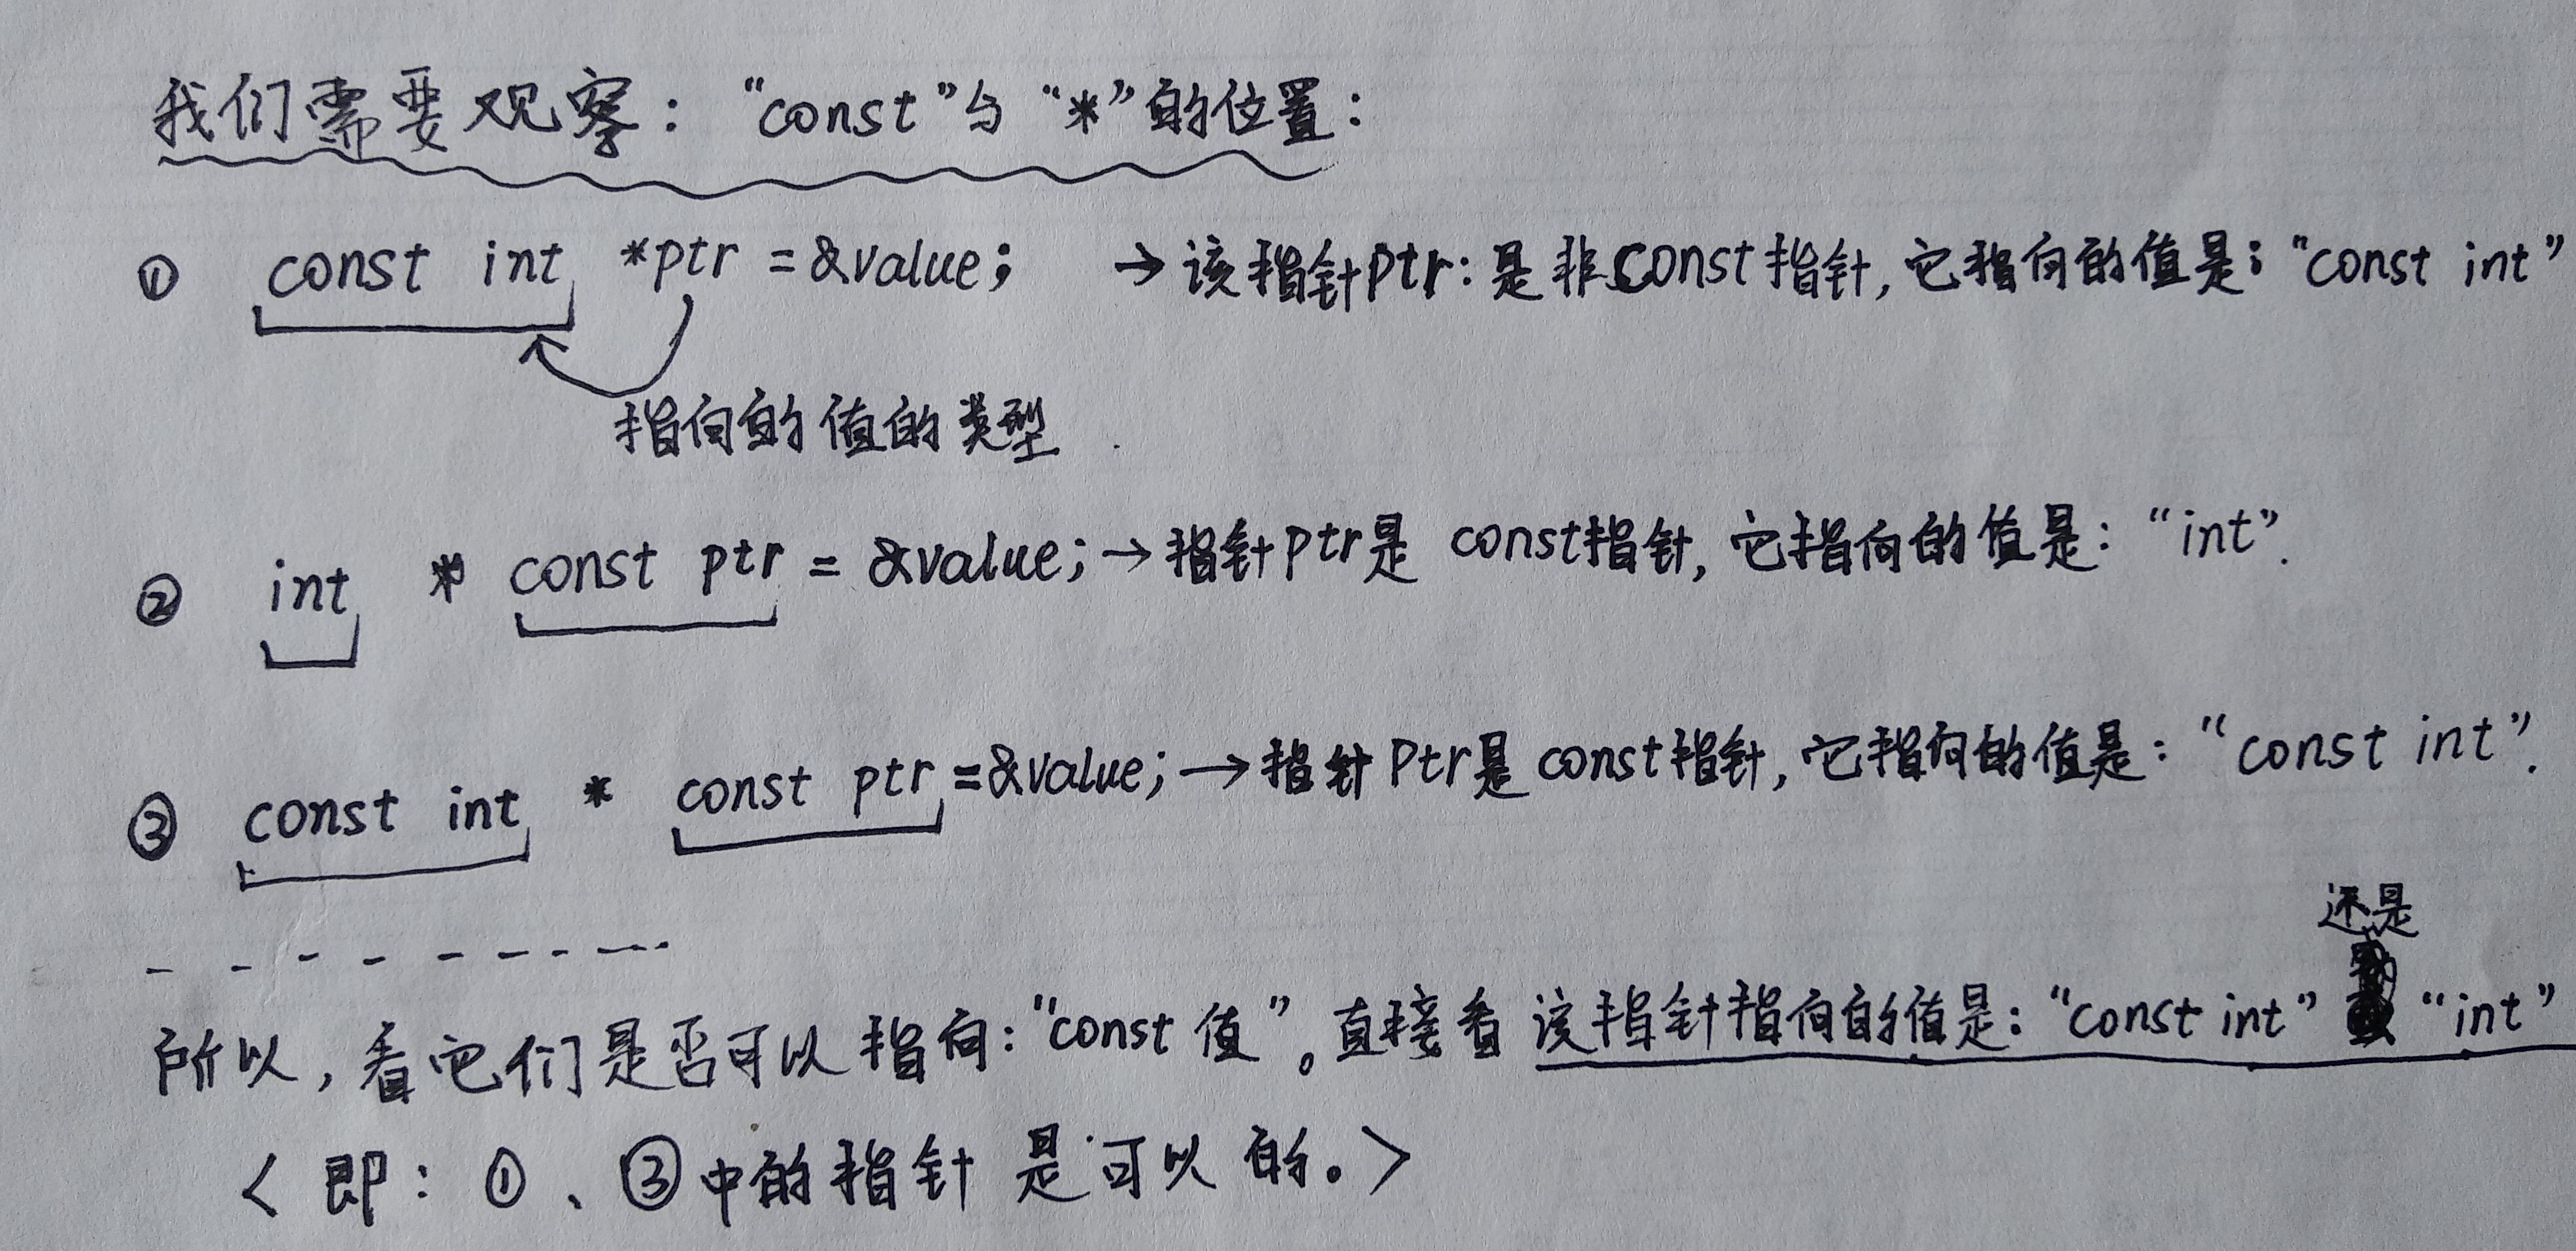 我们需要观察："const"与"*"的位置：
① const int *ptr = &value; → 该指针ptr: 是非const指针, 它指向的值是："const int"
指向的值的类型
② int * const ptr = &value; → 指针ptr是 const指针, 它指向的值是："int".
③ const int * const ptr = &value; → 指针Ptr是const指针, 它指向的值是："const int".
还是
所以, 看它们是否可以指向："const 值"。直接看 该指针指向的值是："const int" "int"
< 即：①、③中的指针 是可以的。>